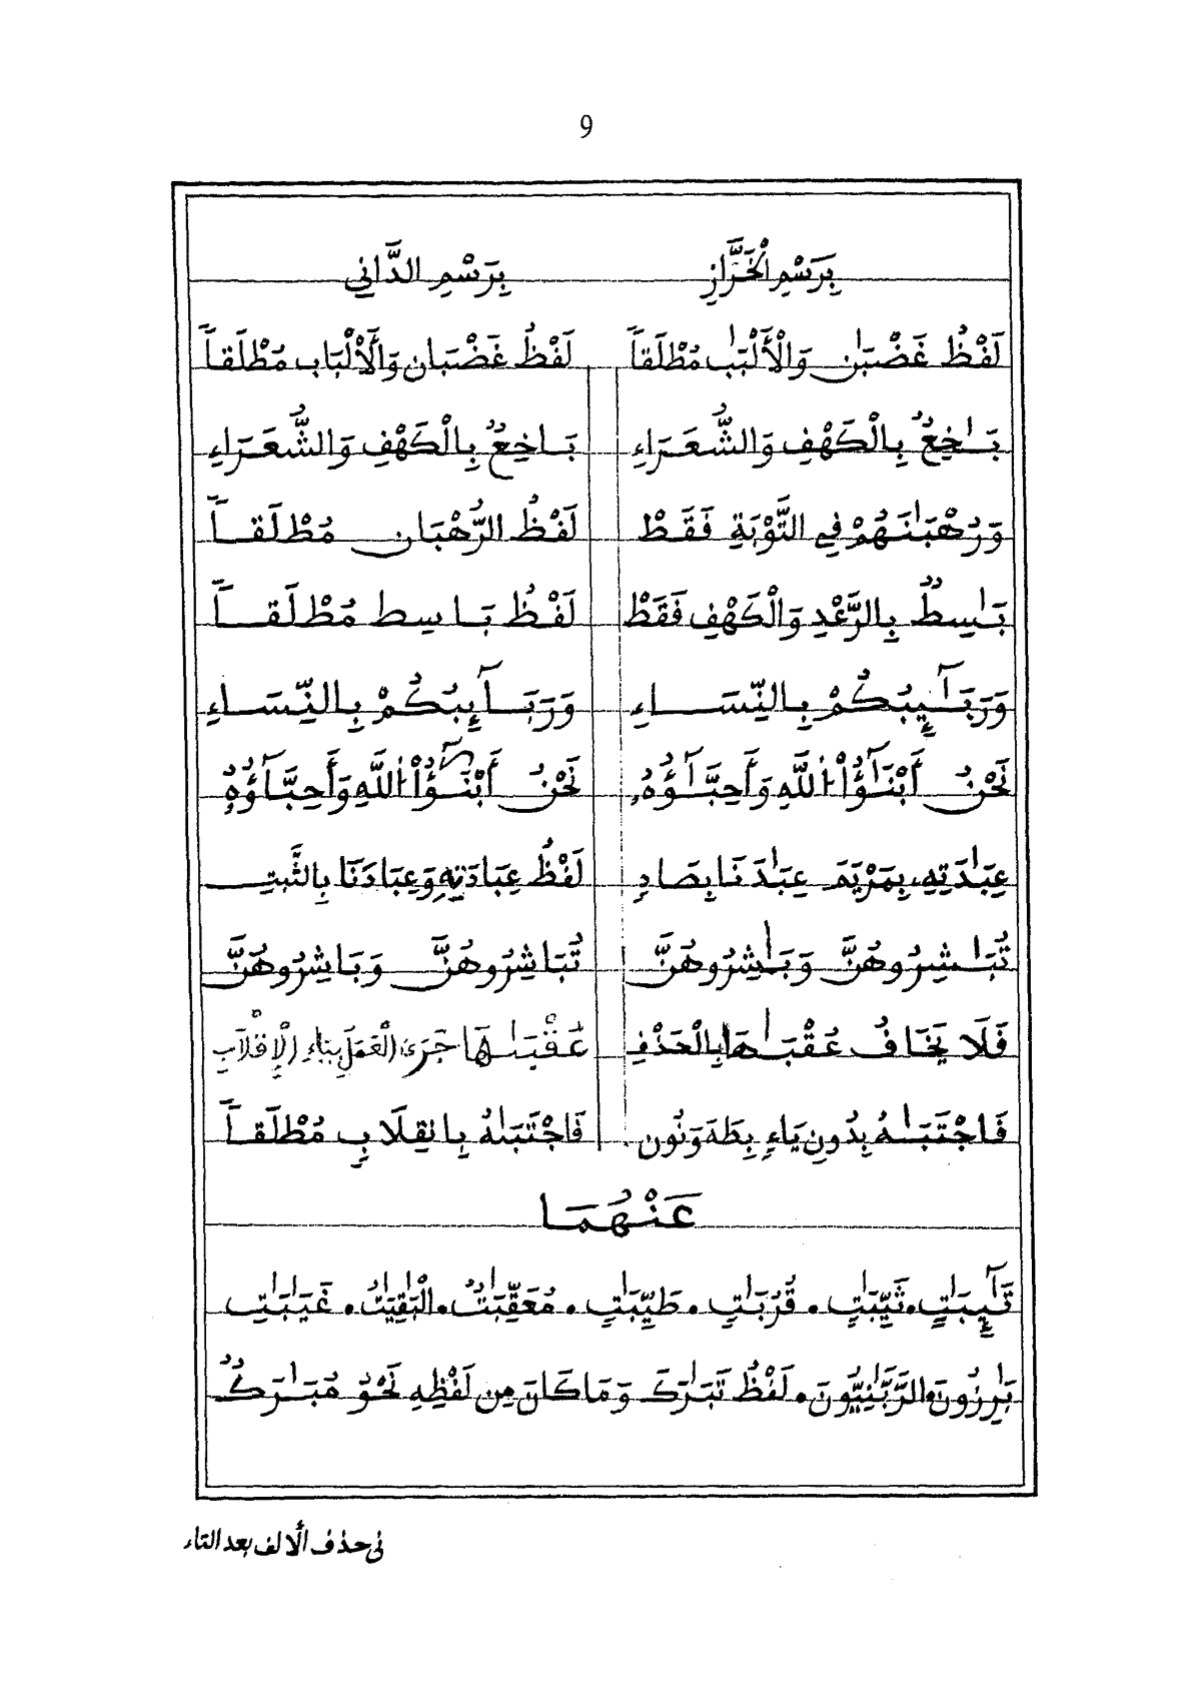 9
بِرَسْمِ الْخَرَّازِ بِرَسْمِ الدَّانِي
لَفْظُ غَضْبَٰن وَالْأَلْبَٰبِ مُطْلَقاً لَفْظُ غَضْبَان وَالْأَلْبَاب مُطْلَقاً
بَٰخِعٌ بِالْكَهْفِ وَالشُّعَرَاءِ بَاخِعٌ بِالْكَهْفِ وَالشُّعَرَاءِ
وَرُهْبَٰنَهُمْ فِي التَّوْبَةِ فَقَطْ لَفْظُ الرُّهْبَان مُطْلَقاً
بَٰسِطٌ بِالرَّعْدِ وَالْكَهْفِ فَقَطْ لَفْظُ بَاسِط مُطْلَقاً
وَرَبَٰٓئِبُكُمْ بِالنِّسَاءِ وَرَبَآئِبُكُمْ بِالنِّسَاءِ
نَحْنُ أَبْنَٰٓؤُاْ اللَّهِ وَأَحِبَّٰٓؤُهُ نَحْنُ أَبْنَٰٓؤُاْ اللَّهِ وَأَحِبَّآؤُهُ
عِبَٰدَتِهِ بِمَرْيَمَ عِبَٰدَنَا بِصَادِ لَفْظُ عِبَادَتِهِ وَعِبَادَنَا بِالثَّبْتِ
تُبَٰشِرُوهُنَّ وَبَٰشِرُوهُنَّ تُبَاشِرُوهُنَّ وَبَاشِرُوهُنَّ
فَلَا يَخَافُ عُقْبَٰهَا بِالْحَذْفِ عُقْبَٰهَا جَرَىٰ الْعَمَلُ بِيَاءِ الْإِقْلَابِ
فَاجْتَبَٰهُ بِدُونِ يَاءٍ بِطَهَ وَنُون فَاجْتَبَٰهُ بِانقِلَابِ مُطْلَقاً
عَنْهُمَا
تَٰٓئِبَٰتٍ. ثَيِّبَٰتٍ. قُرُبَٰتٍ. طَيِّبَٰتٍ. مُعَقِّبَٰتٌ. الْبَٰقِيَٰتُ. غَيَٰبَٰتِ
بَٰرِزُونَ. الرَّبَّٰنِيُّونَ. لَفْظُ تَبَٰرَكَ وَمَا كَانَ مِن لَفْظِهِ نَحْوُ مُبَٰرَكٌ
في حذف الألف بعد التاء